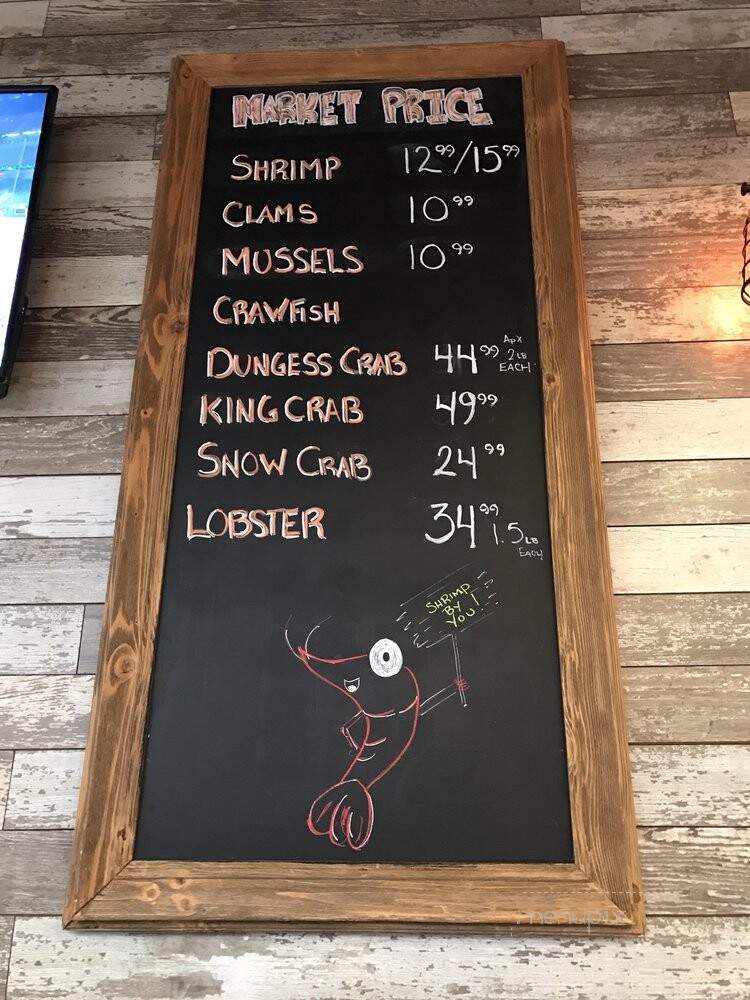 MARKET PRICE
SHRIMP 12⁹⁹/15⁹⁹
CLAMS 10⁹⁹
MUSSELS 10⁹⁹
CRAWFISH
DUNGESS CRAB 44⁹⁹ APX 2LB EACH
KING CRAB 49⁹⁹
SNOW CRAB 24⁹⁹
LOBSTER 34⁹⁹ 1.5LB EACH
SHRIMP
BY
YOU!
menupix